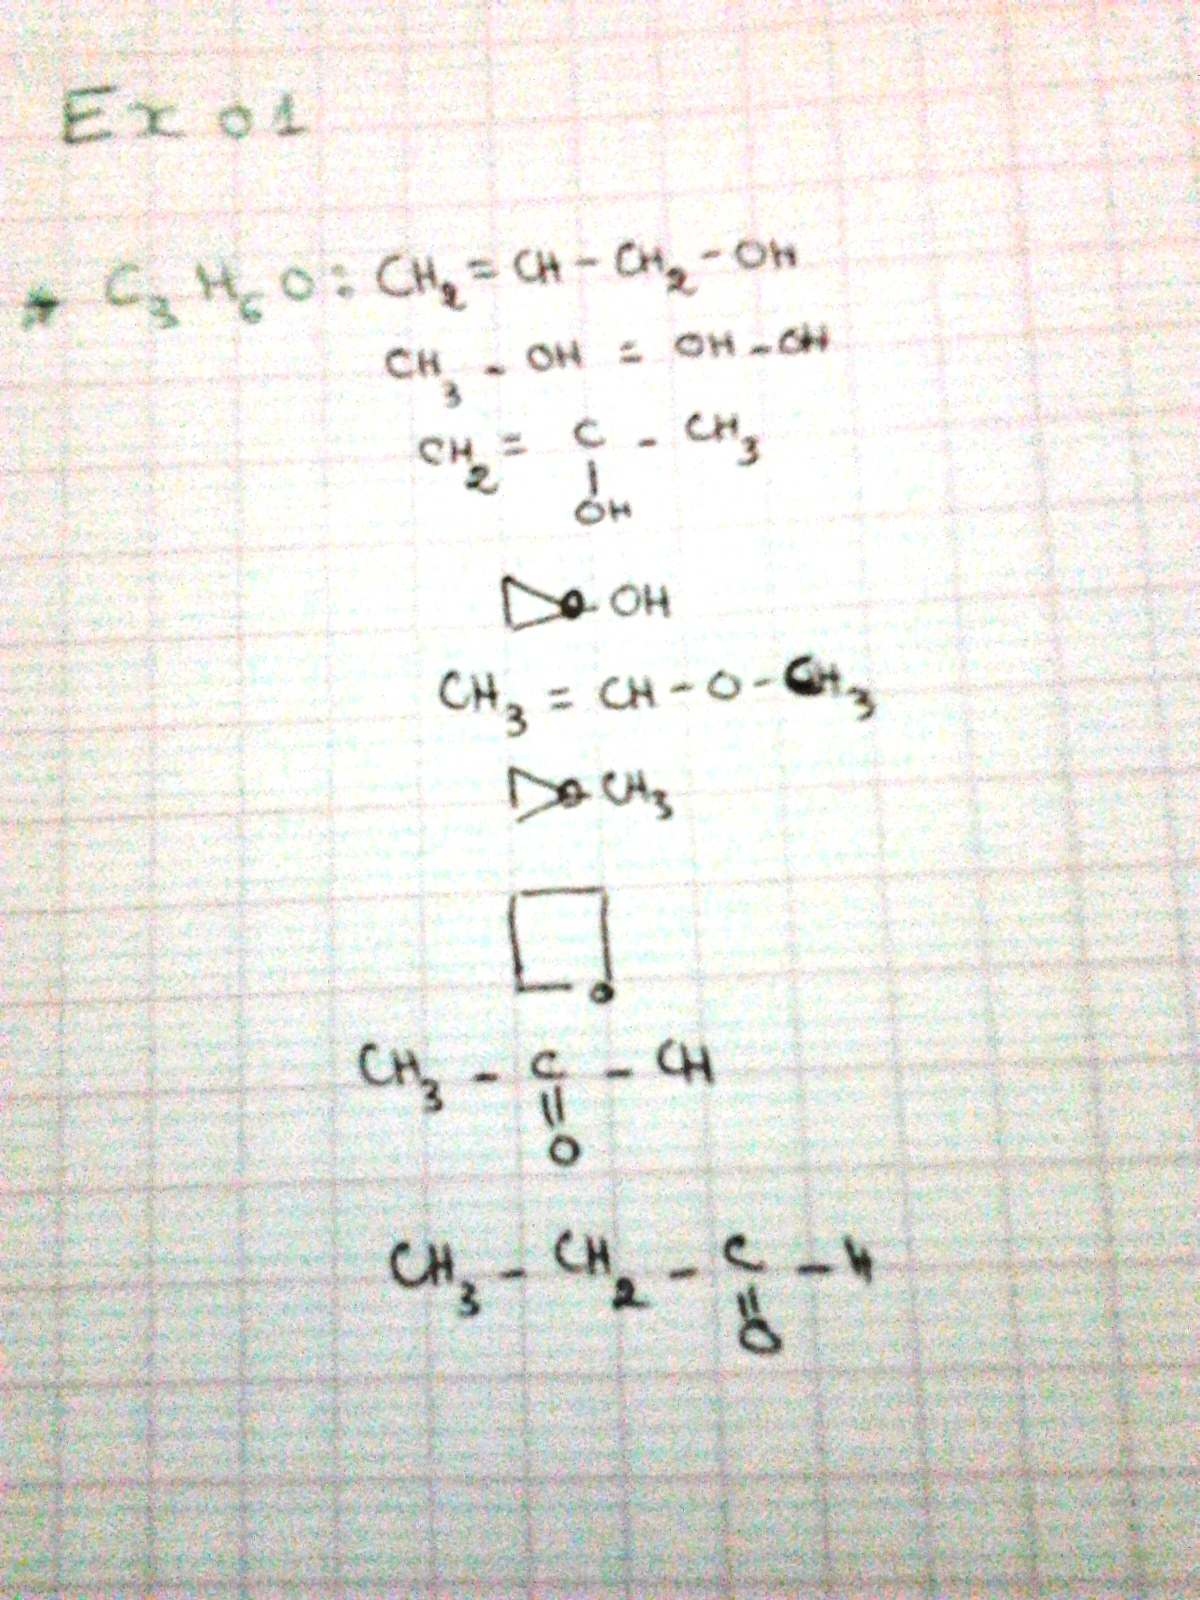 Ex 01
* C₃H₆O : CH₂ = CH - CH₂ - OH
CH₃ - OH = OH - OH
CH₂ = C - CH₃
OH
OH
CH₃ = CH - O - CH₃
O CH₃
O
CH₃ - C - CH
O
CH₃ - CH₂ - C - H
O